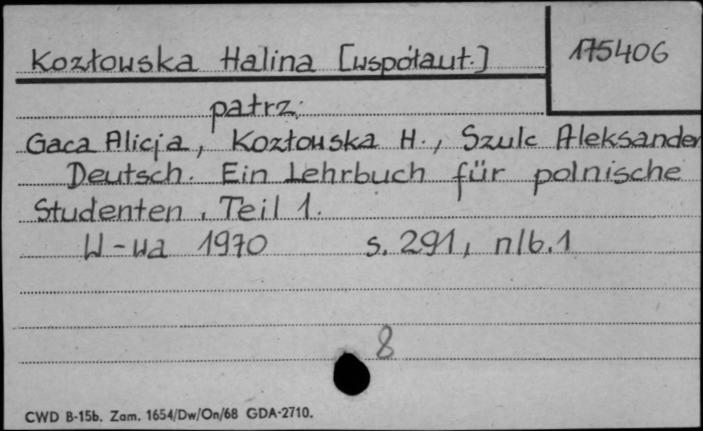 Kozłowska Halina [współaut.]
175406
patrz:
Gaca Alicja, Kozłowska H., Szulc Aleksander
Deutsch. Ein Lehrbuch für polnische
Studenten. Teil 1.
W-wa 1970 s. 291, nlb. 1
8
CWD B-15b. Zam. 1654/Dw/On/68 GDA-2710.